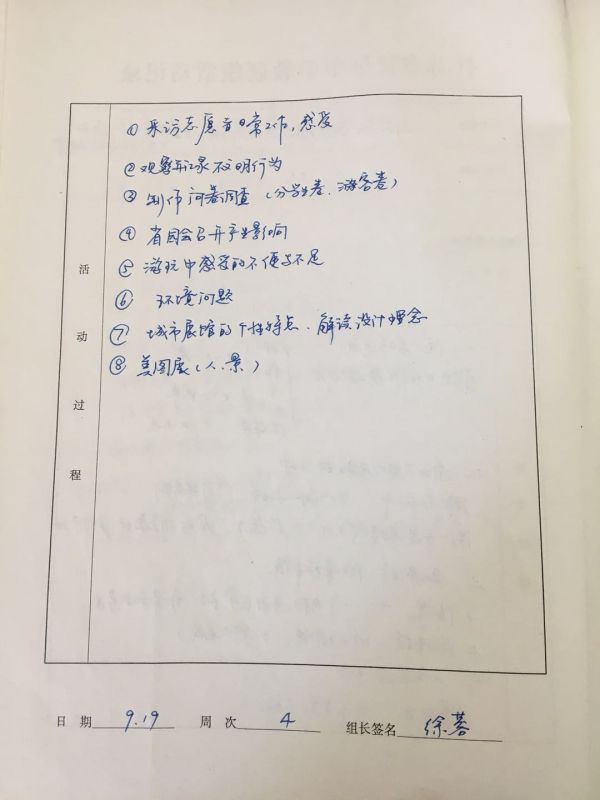 ① 采访志愿者日常工作，感受
② 观察并记录不文明行为
③ 制作问卷调查（分学生卷、游客卷）
④ 省园会召开产生影响
⑤ 游玩中感受的不便与不足
⑥ 环境问题
⑦ 城市展馆的个性特点、解读设计理念
⑧ 美图展（人、景）
活动过程
日期 9.19 周次 4 组长签名 徐蓉